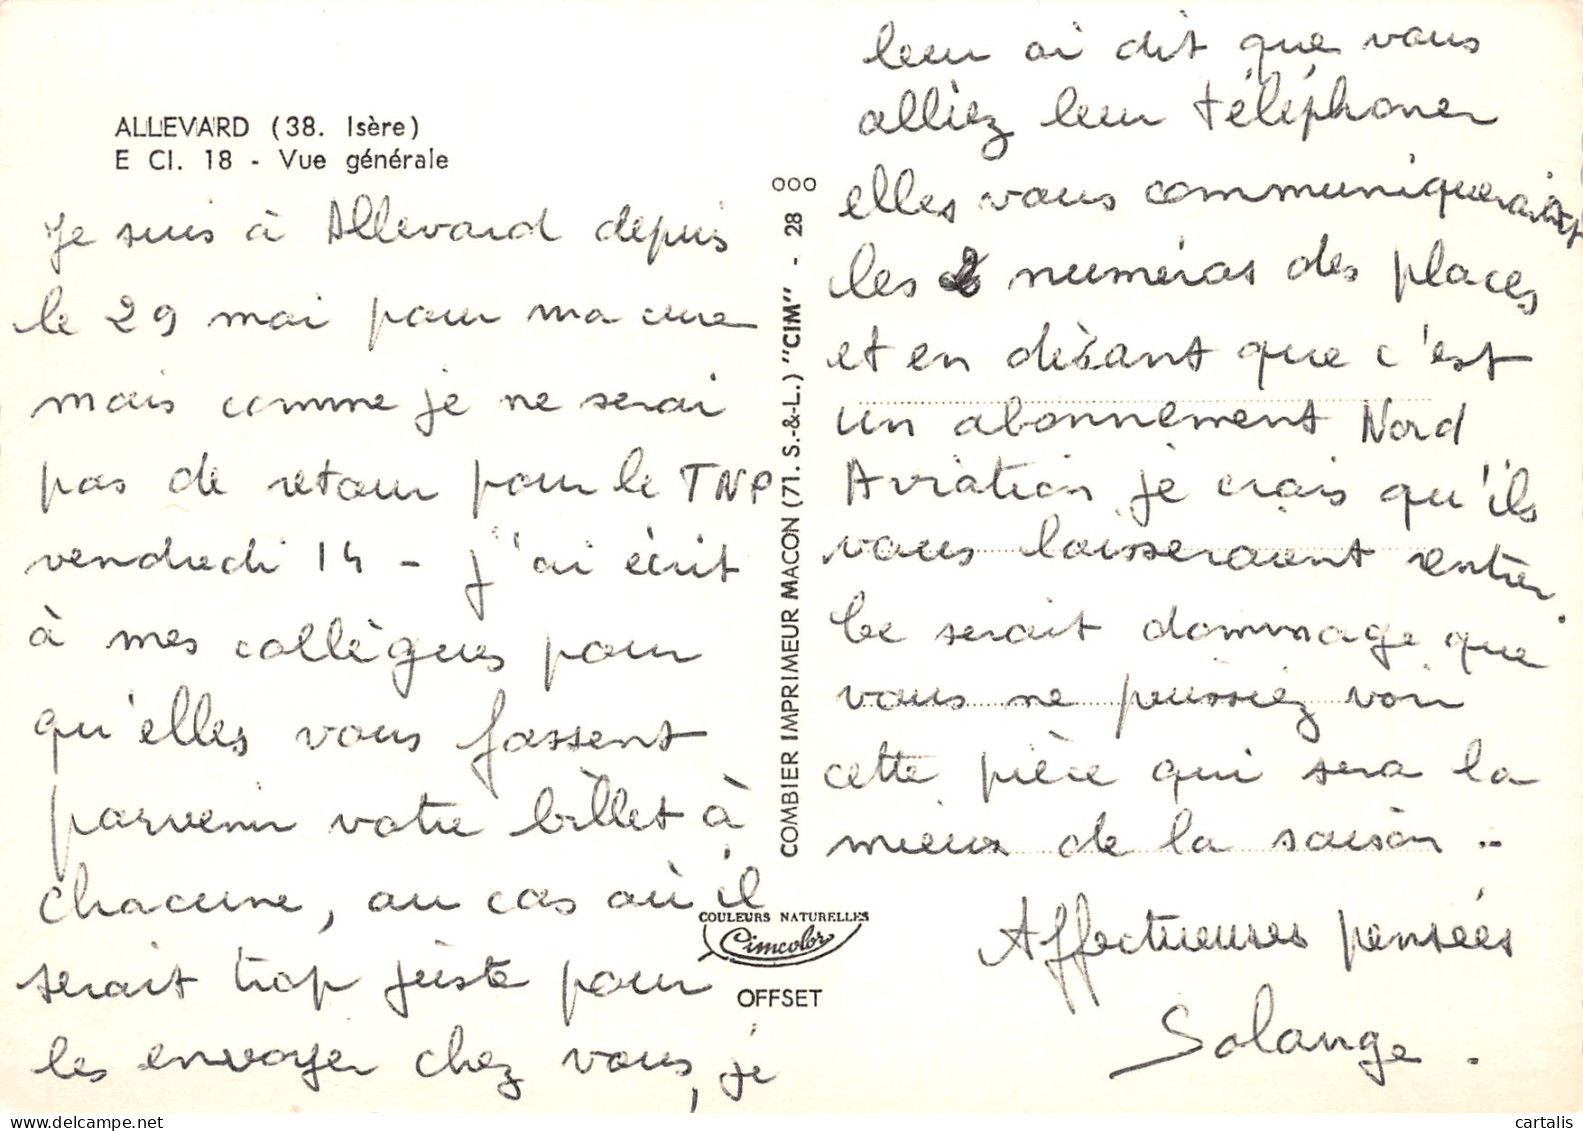 ALLEVARD (38. Isère)
E CI. 18 - Vue générale
Je suis à Allevard depuis
le 29 mai pour ma cure
mais comme je ne serai
pas de retour pour le TNP
vendredi 14 - j'ai écrit
à mes collègues pour
qu'elles vous fassent
parvenir votre billet à
chacune, au cas où il
serait trop juste pour
les envoyer chez vous, je
COMBIER IMPRIMEUR MACON (71. S.-&-L.) "CIM" - 28
000
COULEURS NATURELLES
Cimcolor
OFFSET
leur ai dit que vous
alliez leur téléphoner
elles vous communiqueraient
les 2 numéros des places
et en disant que c'est
un abonnement Nord
Aviation je crois qu'ils
vous laisseraient entrer.
Ce serait dommage que
vous ne puissiez voir
cette pièce qui sera la
mieux de la saison ..
Affectueuses pensées
Solange.
cartalis